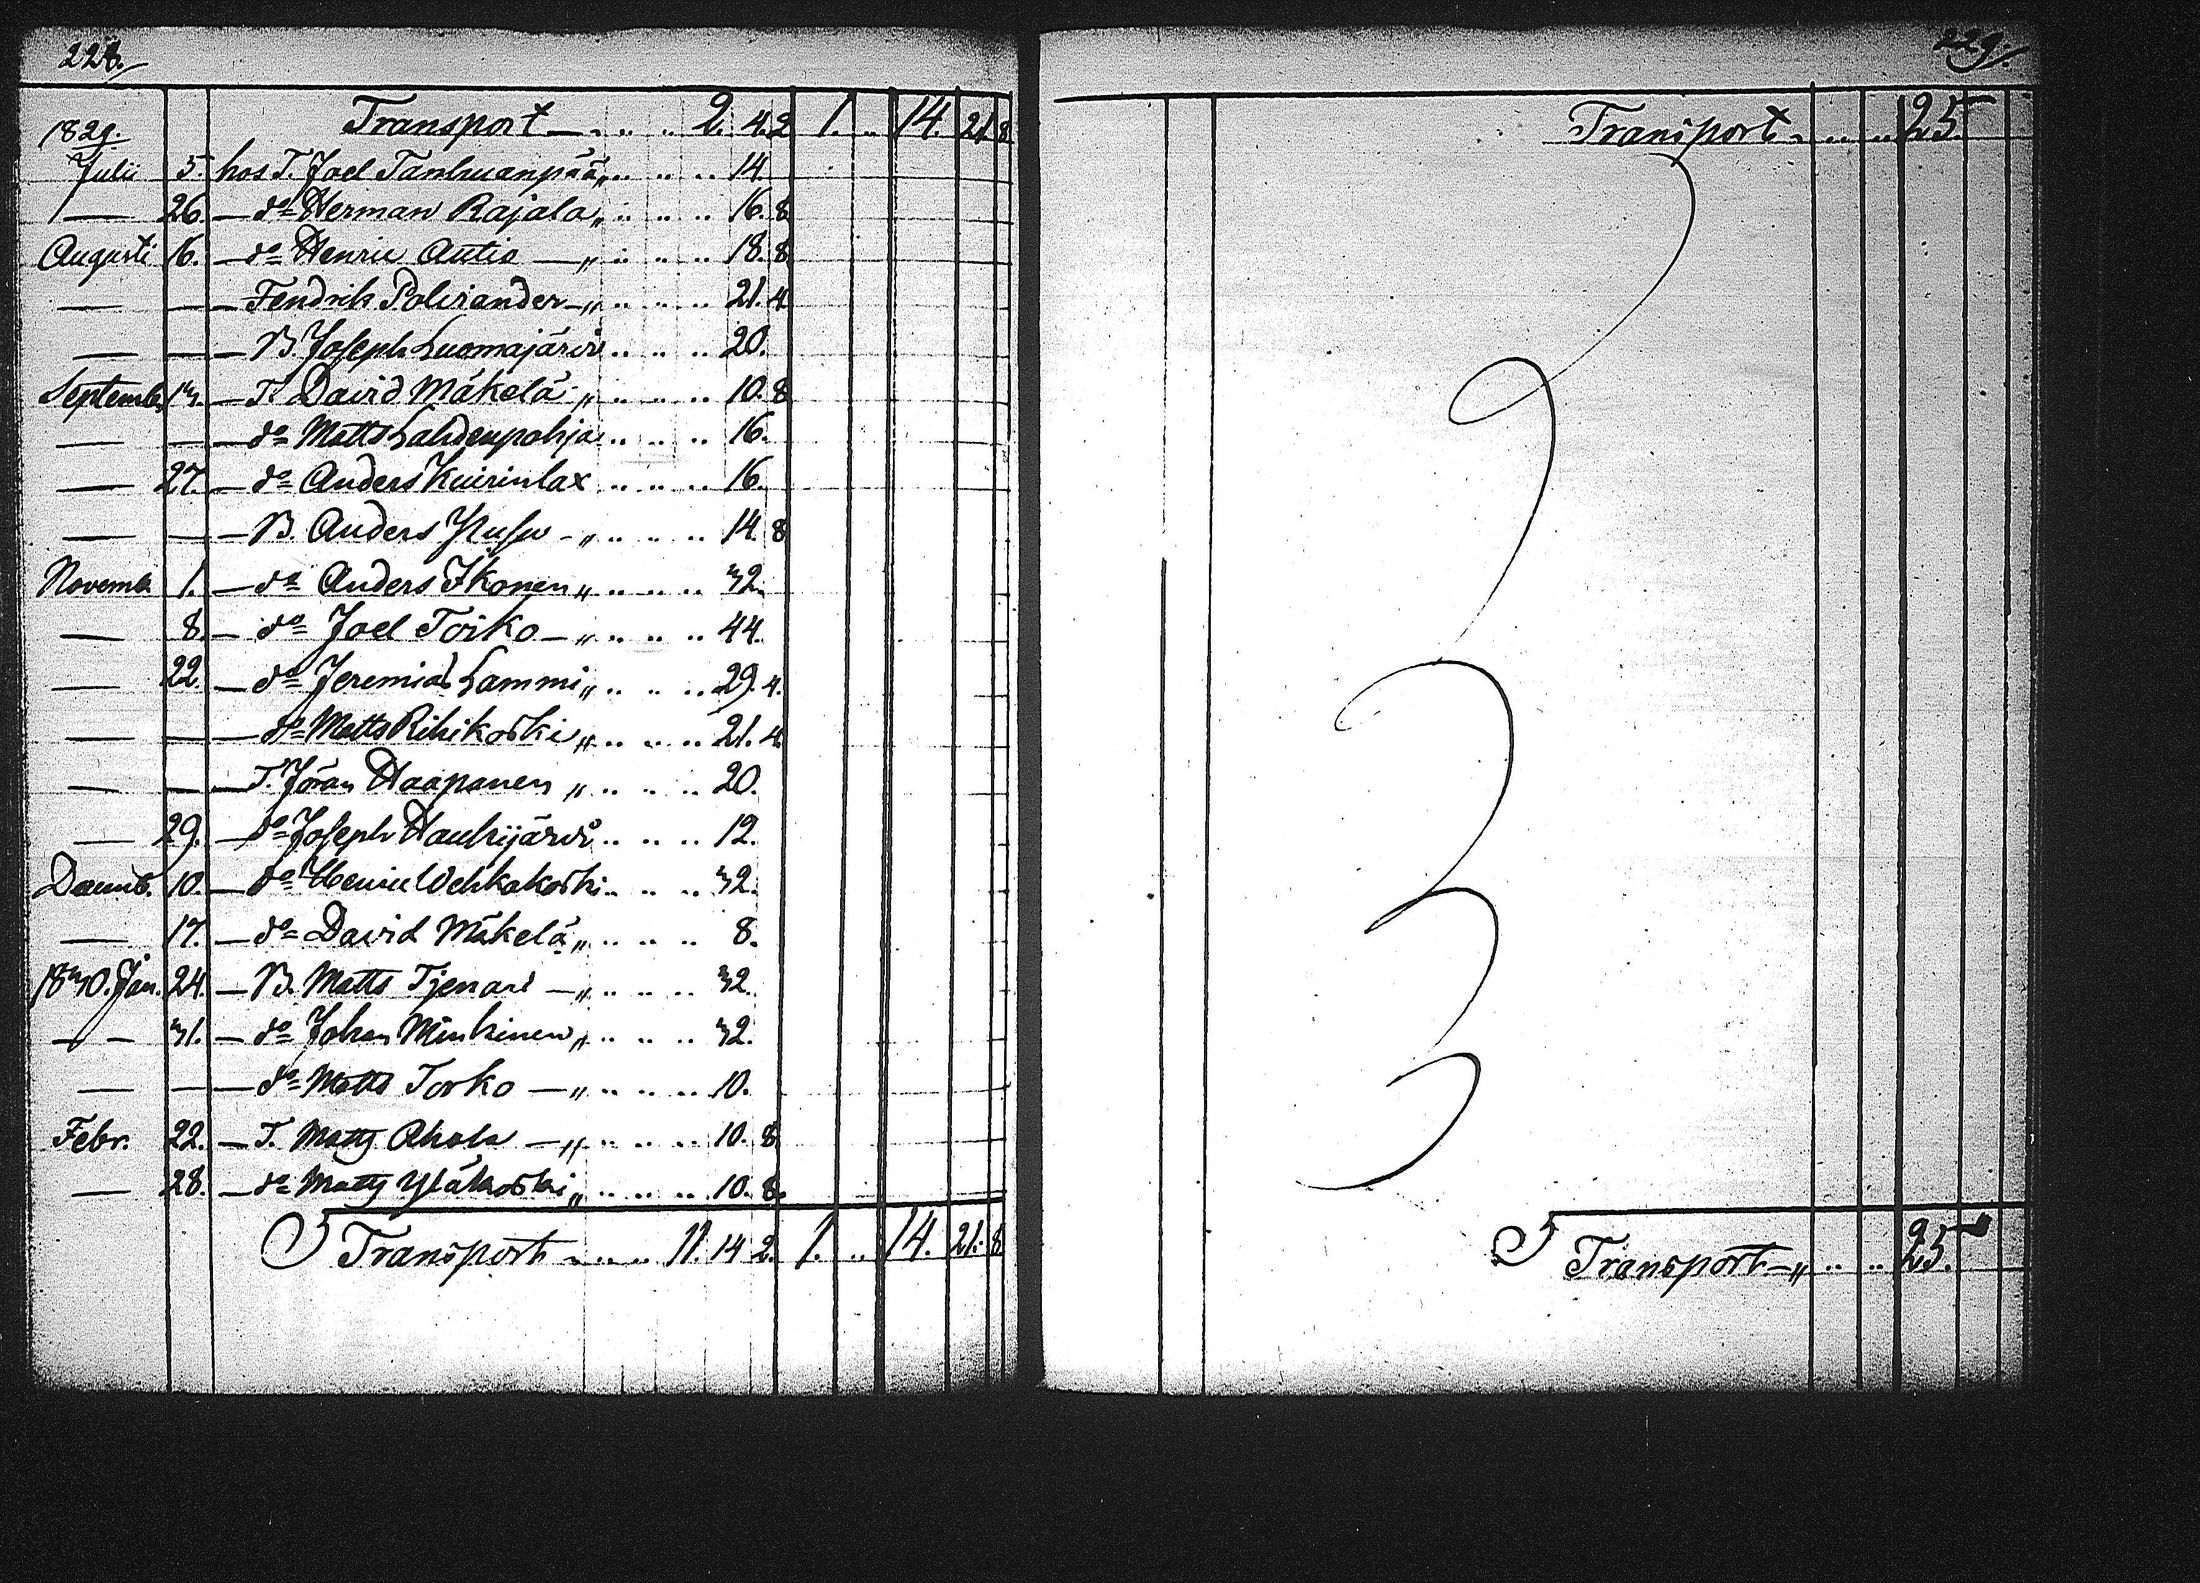 228.
1829. Transport — " .. .. 2. 4. 2 1. .. 14. 21. 8
Julii 5. hos T. Joel Tanhuanpää " .. .. .. 14.
— 26. — d:o Herman Rajala " .. .. .. 16. 8.
Augusti 16. — d:o Henric Autio — " .. .. .. 18. 8.
— — — Fendrik Polviander — " .. .. .. 21. 4.
— — — B. Joseph Luomajärvi .. .. .. 20.
Septemb. 13. — T. David Mäkelä " .. .. .. 10. 8
— — — d:o Matts Lahdenpohja .. .. .. 16.
— 27. — d:o Anders Kuirinlax .. .. .. 16.
— — — B. Anders — " .. .. .. 14. 8
Novemb. 1. — d:o Anders Ikonen " .. .. .. 32.
— 8. — d:o Joel Toiko — " .. .. .. 44.
— 22. — d:o Jeremias Lammi " .. .. .. 29. 4.
— — — d:o Matts Rihikoski " .. .. .. 21. 4.
— — — T. Jöran Haapanen " .. .. .. 20.
— 29. — d:o Joseph Haukijärvi .. .. .. 12.
Decemb. 10. — d:o Henric Wehkakoski .. .. .. 32.
— 17. — d:o David Mäkelä " .. .. .. 8.
1830. Jan. 24. — B. Matts — " .. .. .. 32.
— — 31. — d:o Johan Minkinen " .. .. .. 32.
— — — d:o Matts Torko — " .. .. .. 10.
Febr. 22. — T. Matts Ahola — " .. .. .. 10. 8.
— 28. — d:o Matts Yläkoski " .. .. .. 10. 8.
Transport " .. .. 11. 14 2. 1. .. 14. 21. 8
229.
Transport " .. .. .. 25.
Transport — " .. .. 25. "